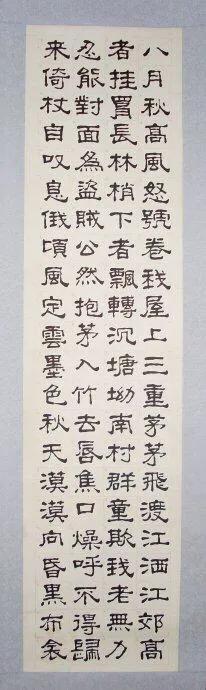 八月秋高風怒號卷我屋上三重茅茅飛渡江洒江郊高
者挂罥長林梢下者飄轉沉塘坳南村群童欺我老無力
忍能對面為盜賊公然抱茅入竹去唇焦口燥呼不得歸
来倚杖自叹息俄頃風定雲墨色秋天漠漠向昏黑布衾